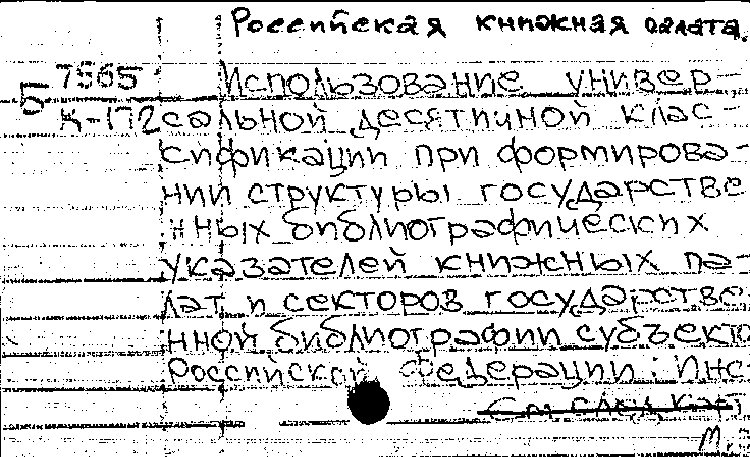 Российская книжная палата.
Б 7565 Использование универ-
К-172 сальной десятичной клас-
сификации при формирова-
нии структуры государстве
нных библиографических
указателей книжных па-
лат и секторов государстве
нной библиографии субъекто
Российской Федерации: Инс
См след карт
М.